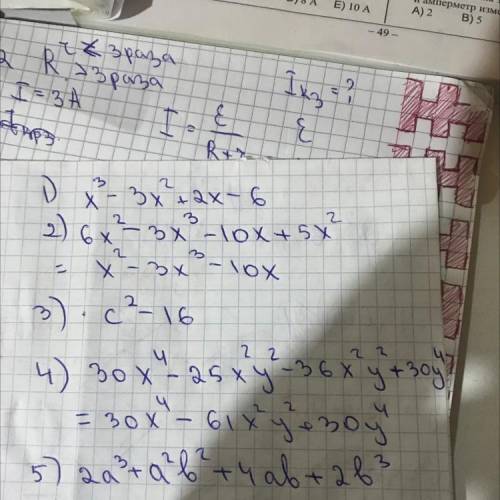 8 A E) 10 A
и амперметр изме
A) 2 B) 5
- 49 -
r < 3 раза
R > 3 раза
I = 3A
Iкз = ?
I = ε / R+r ε
1) x³ - 3x² + 2x - 6
2) 6x² - 3x³ - 10x + 5x²
= x² - 3x³ - 10x
3) c² - 16
4) 30x⁴ - 25x²y² - 36x²y² + 30y⁴
= 30x⁴ - 61x²y² + 30y⁴
5) 2a³ + a²b² + 4ab + 2b³